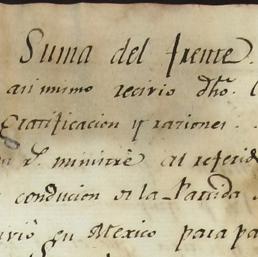 Suma del frente.
asi mismo recivio dho.
Gratificacion y raziones.
ministre al referid
conducion de la Partida
en Mexico para pa